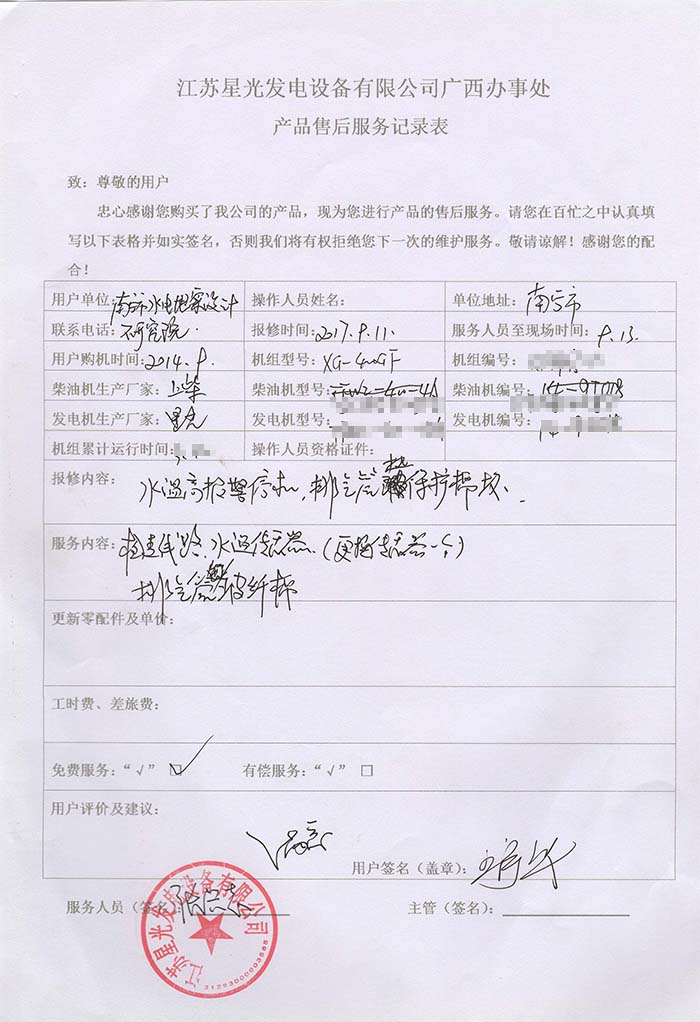 江苏星光发电设备有限公司广西办事处
产品售后服务记录表
致：尊敬的用户
忠心感谢您购买了我公司的产品，现为您进行产品的售后服务。请您在百忙之中认真填
写以下表格并如实签名，否则我们将有权拒绝您下一次的维护服务。敬请谅解！感谢您的配
合！
用户单位：南宁市水电地质设计 操作人员姓名： 单位地址：南宁市
联系电话：研究院. 报修时间：2017.9.11. 服务人员至现场时间：9.13.
用户购机时间：2014.9. 机组型号：XG-400GF 机组编号：
柴油机生产厂家：上柴 柴油机型号： 柴油机编号：
发电机生产厂家：星光 发电机型号： 发电机编号：
机组累计运行时间： 操作人员资格证件：
报修内容：水温高报警停机，排气管 保护棉
服务内容：检查线路、水温传感器.（更换传感器一个）
排气管 玻纤棉
更新零配件及单价：
工时费、差旅费：
免费服务：“√” ☑ 有偿服务：“√” □
用户评价及建议：
用户签名（盖章）：
服务人员（签名）： 主管（签名）：
江苏星光发电设备有限公司